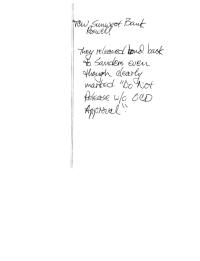 Sunwest Bank
Roswell
They released bond back
to Sanders even
though clearly
marked "Do Not
Release w/o OCD
Approval".